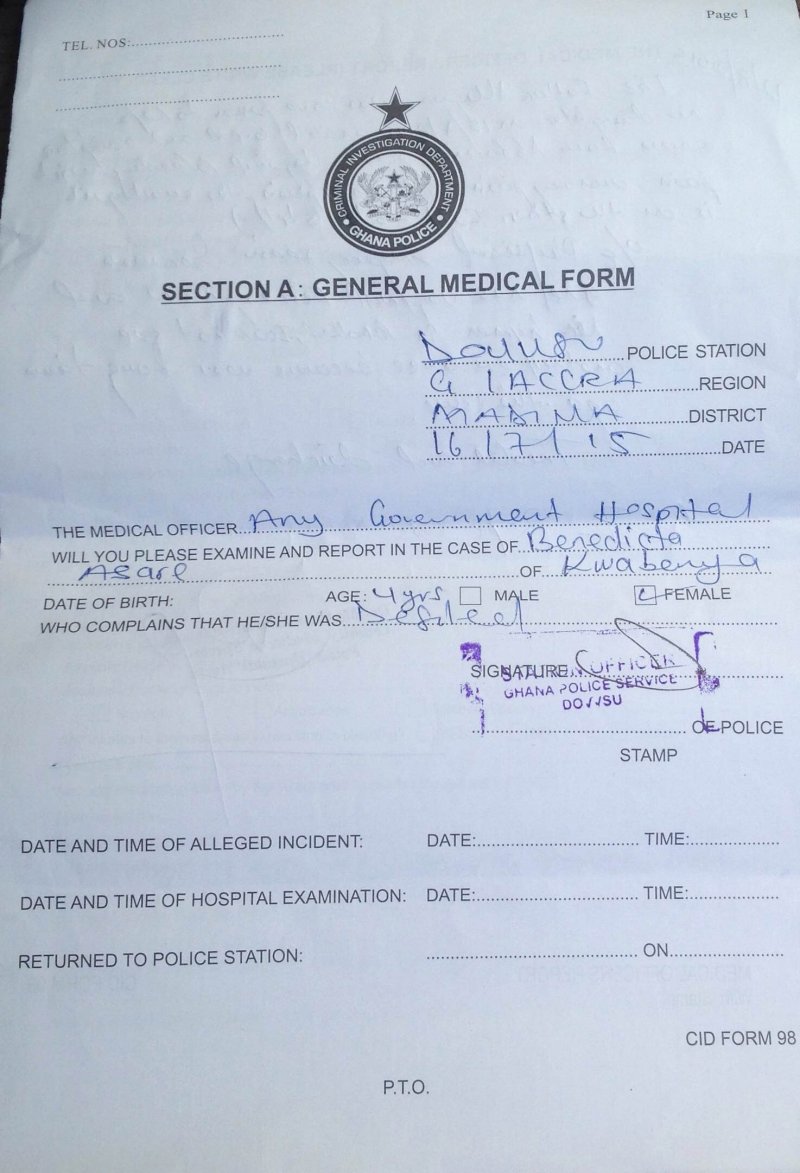 Page 1
TEL. NOS:
CRIMINAL INVESTIGATION DEPARTMENT
GHANA POLICE
SECTION A: GENERAL MEDICAL FORM
DOVVSU POLICE STATION
G / ACCRA REGION
MADINA DISTRICT
16/7/15 DATE
THE MEDICAL OFFICER Any Government Hospital
WILL YOU PLEASE EXAMINE AND REPORT IN THE CASE OF Benedicta
Asare OF Kwabenya
DATE OF BIRTH: AGE: 4yrs MALE FEMALE
WHO COMPLAINS THAT HE/SHE WAS Defiled
SIGNATURE
STATION OFFICER
GHANA POLICE SERVICE
DOVVSU
OF POLICE
STAMP
DATE AND TIME OF ALLEGED INCIDENT: DATE: TIME:
DATE AND TIME OF HOSPITAL EXAMINATION: DATE: TIME:
RETURNED TO POLICE STATION: ON
CID FORM 98
P.T.O.